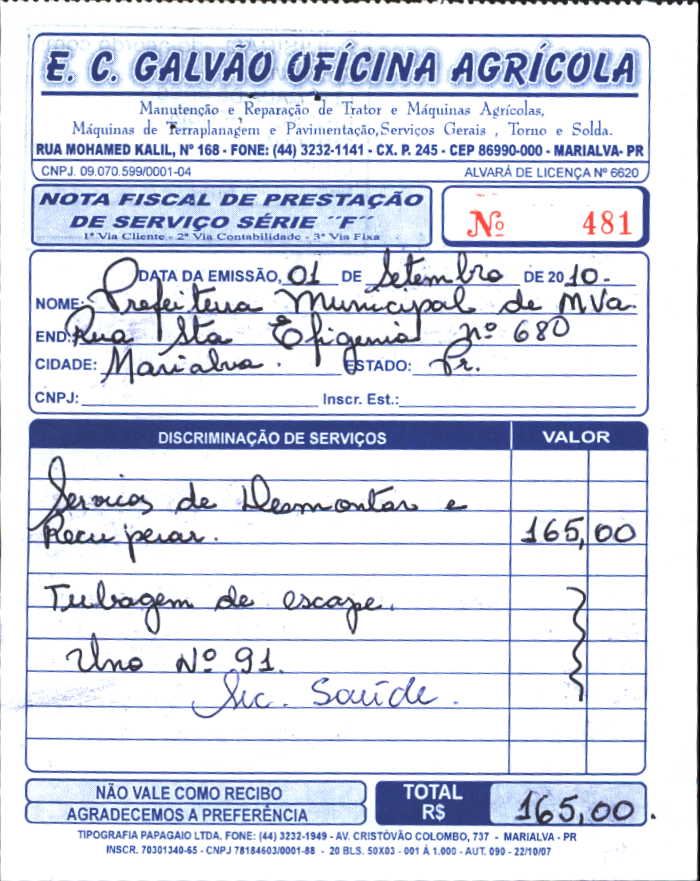 E. C. GALVÃO OFÍCINA AGRÍCOLA
Manutenção e Reparação de Trator e Máquinas Agrícolas,
Máquinas de Terraplanagem e Pavimentação, Serviços Gerais , Torno e Solda.
RUA MOHAMED KALIL, Nº 168 - FONE: (44) 3232-1141 - CX. P. 245 - CEP 86990-000 - MARIALVA- PR
CNPJ. 09.070.599/0001-04 ALVARÁ DE LICENÇA Nº 6620
NOTA FISCAL DE PRESTAÇÃO
DE SERVIÇO SÉRIE ´´F´´
1ª Via Cliente - 2ª Via Contabilidade - 3ª Via Fixa
Nº 481
DATA DA EMISSÃO, 01 DE Setembro DE 2010.
NOME: Prefeitura Municipal de MVa.
END: Rua Sta Efigenia nº 680
CIDADE: Marialva. ESTADO: Pr.
CNPJ: Inscr. Est.:
DISCRIMINAÇÃO DE SERVIÇOS VALOR
Servicos de Desmontar e
Recuperar. 165,00
Tubagem de escape.
Uno Nº 91.
Sec. Saúde.
NÃO VALE COMO RECIBO
AGRADECEMOS A PREFERÊNCIA
TOTAL
R$ 165,00.
TIPOGRAFIA PAPAGAIO LTDA. FONE: (44) 3232-1949 - AV. CRISTÓVÃO COLOMBO, 737 - MARIALVA - PR
INSCR. 70301340-65 - CNPJ 78184603/0001-88 - 20 BLS. 50X03 - 001 Á 1.000 - AUT. 090 - 22/10/07